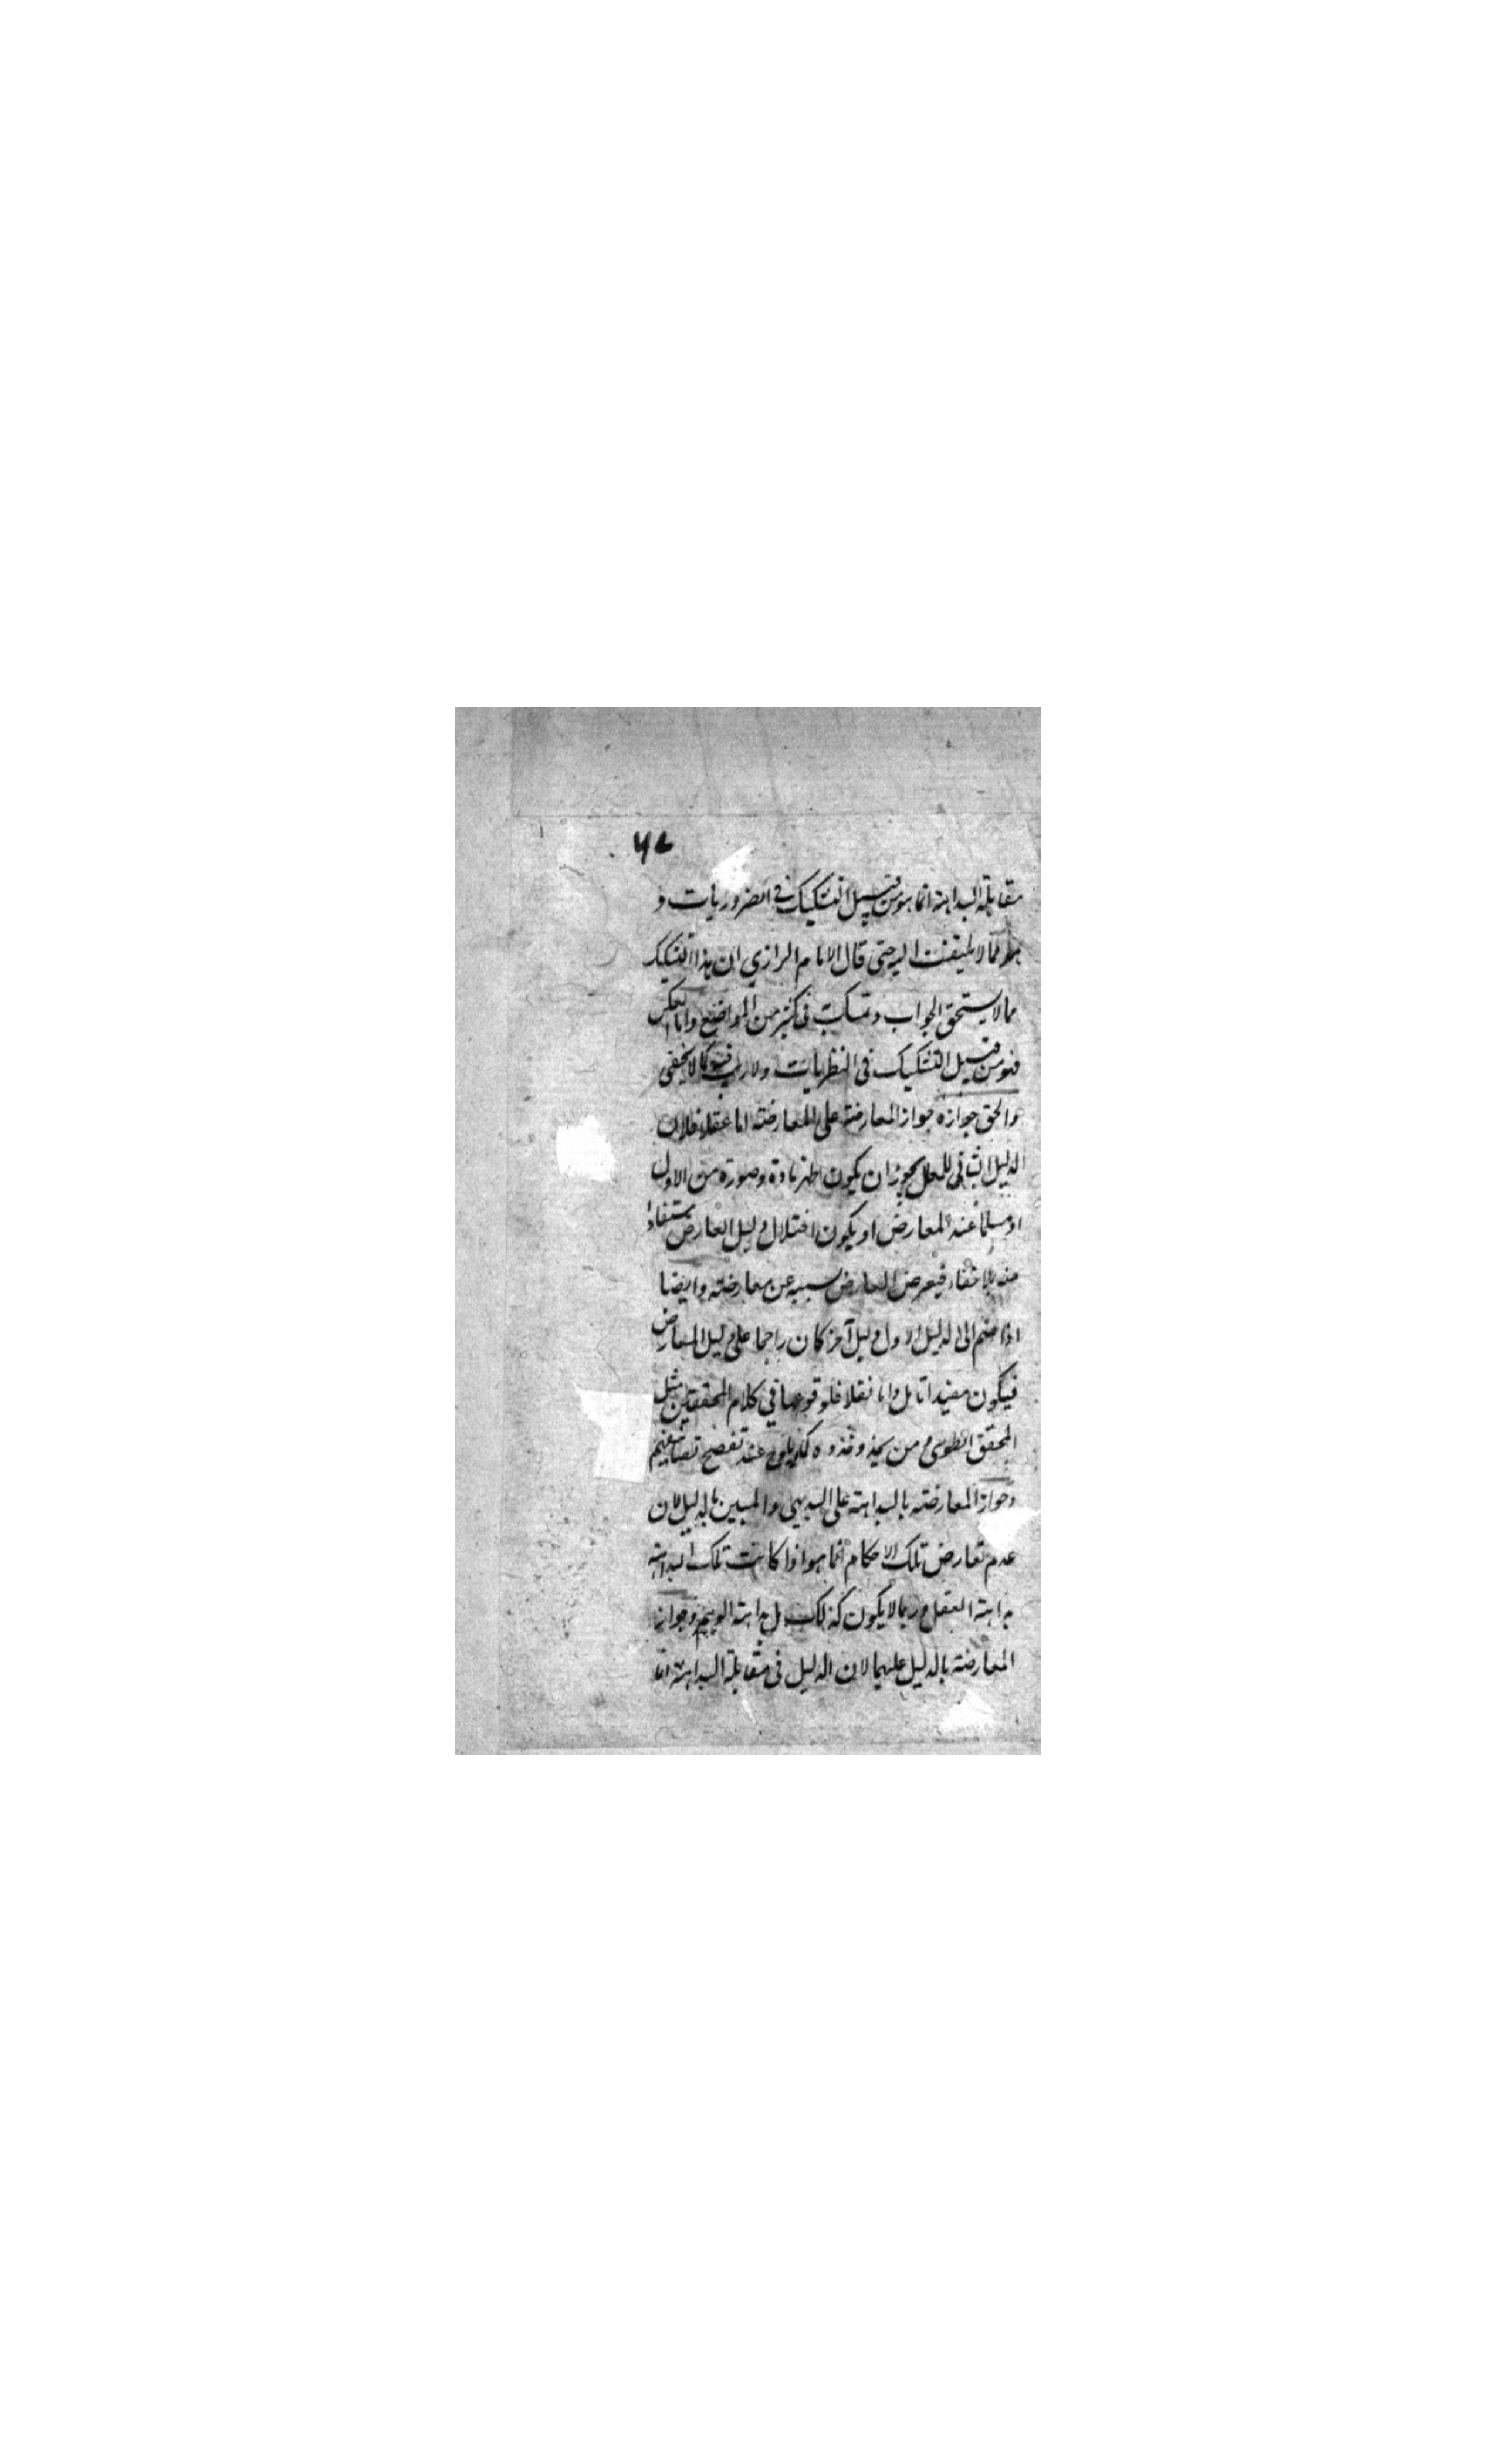 ٥٧
مقابلة البداهة انما هو من قبيل التشكيك فى الضروريات و
هو مما لا يلتفت اليه حتى قال الامام الرازي ان هذا التشكيك
مما لا يستحق الجواب وتمسكت فى كثير من المواضع واما العكس
فهو من قبيل التشكيك فى النظريات ولا ريب فيه كما لا يخفى
والحق جوازه جواز المعارضة على المعارضة اما عقلا فلان
الدليل الثانى للمعلل يجوز ان يكون اظهر مادة وصورة من الاول
او مسلما عند المعارض او يكون اختلال دليل المعارض مستفادا
منه بلا خفاء فيعرض المعارض بسببه عن معارضته وايضا
اذا ضم الى الدليل الاول دليل آخر كان راجحا على دليل المعارض
فيكون مفيدا تامل واما نقلا فلوقوعها في كلام المحققين مثل
المحقق الطوسى ومن يحذو حذوه عند تفصح تصانيفهم
وجواز المعارضة بالبداهة على البديهي والمبين بالدليل لان
عدم تعارض تلك الاحكام انما هو اذا كانت تلك البداهة
بداهة العقل وربما لا يكون كذلك بل بداهة الوهم وجواز
المعارضة بالدليل عليهما لان الدليل فى مقابلة البداهة انما